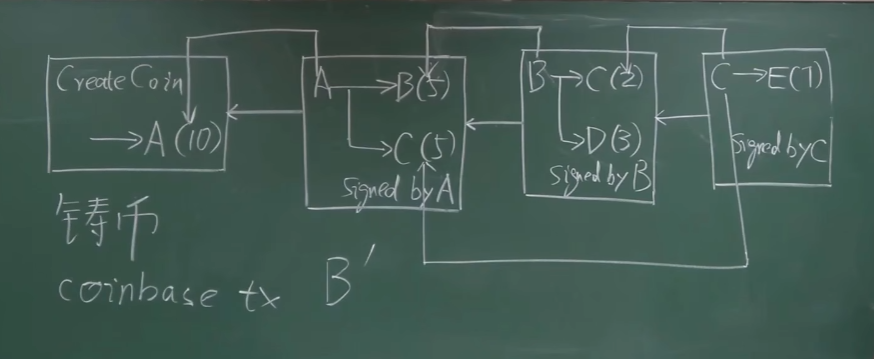 CreateCoin
→A(10)
A→B(5)
→C(5)
signed by A
B→C(2)
→D(3)
signed by B
C→E(7)
signed by C
铸币
coinbase tx B'